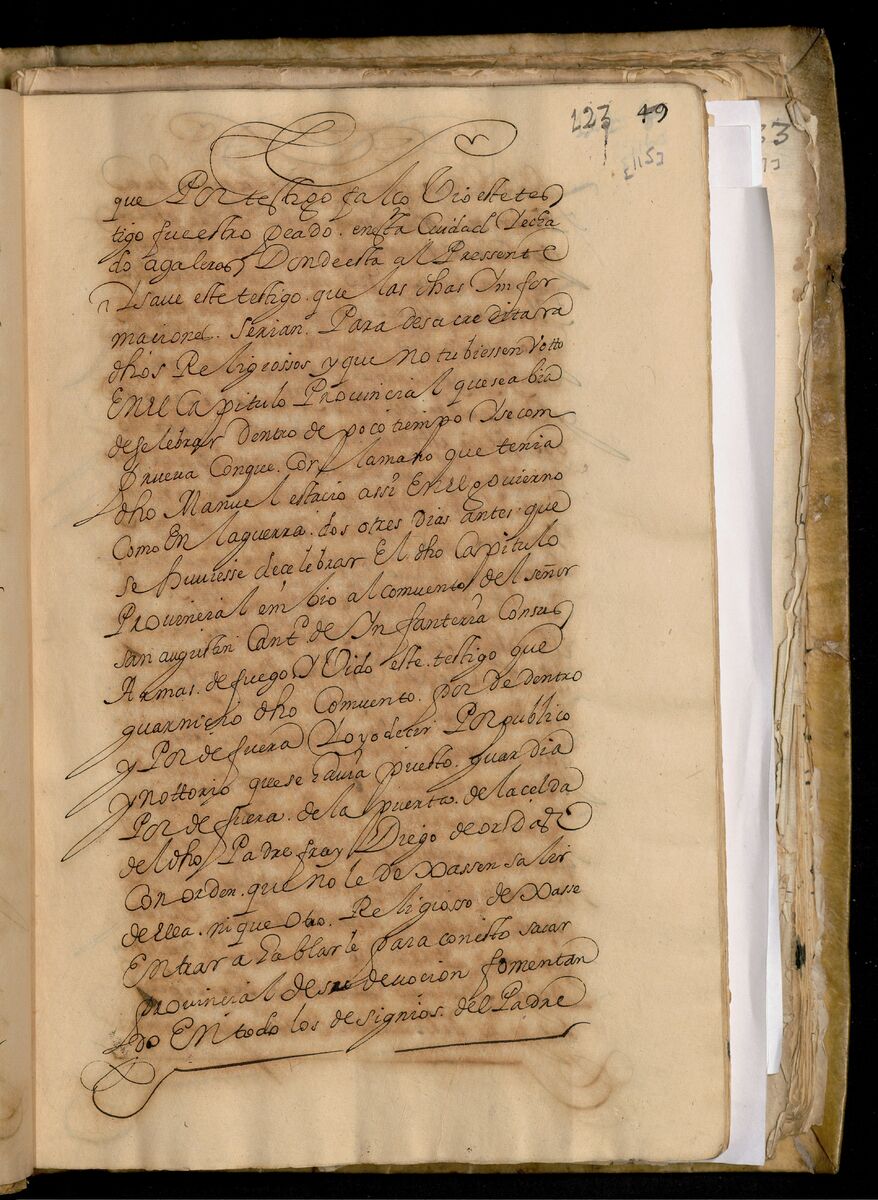 123 49
[115]
que Por testigo falço Vio este tes
tigo fuestro peado. en esta Ciudad Y echa
do a galeras Donde esta al Pressente
Y save este testigo. que las dhas Ynfor
maciones. serian. Para desacreditar a
dhos Religiossos y que no tubiessen Votto
En el Capitulo Provincial que se abia
de selebrar dentro de poco tiempo Y se com
prueva Con que. Con la mano que tenia
dho Manuel estacio assi En el govierno
Como En la guerra. dos o tres dias antes. que
se huviesse de celebrar El dho Capitulo
Provincial embio al comuento del señor
san augustin Cantd. de Ynfanteria Con sus
Armas. de fuego Y Vido este. testigo que
guarnicio dho Comuento. por de dentro
y Por de fuera Y oyo decir Por publico
y nottorio que se havia puesto. guardia
Por de fuera. de la puerta. de la celda
del dho Padre fray Diego de ordas
Con orden. que no le dexassen salir
de ella. ni que otro. Religiosso dexasse
Entrar a hablarle para con esto sacar
provincial de su devocion fomentan
do En todo los designios. del Padre